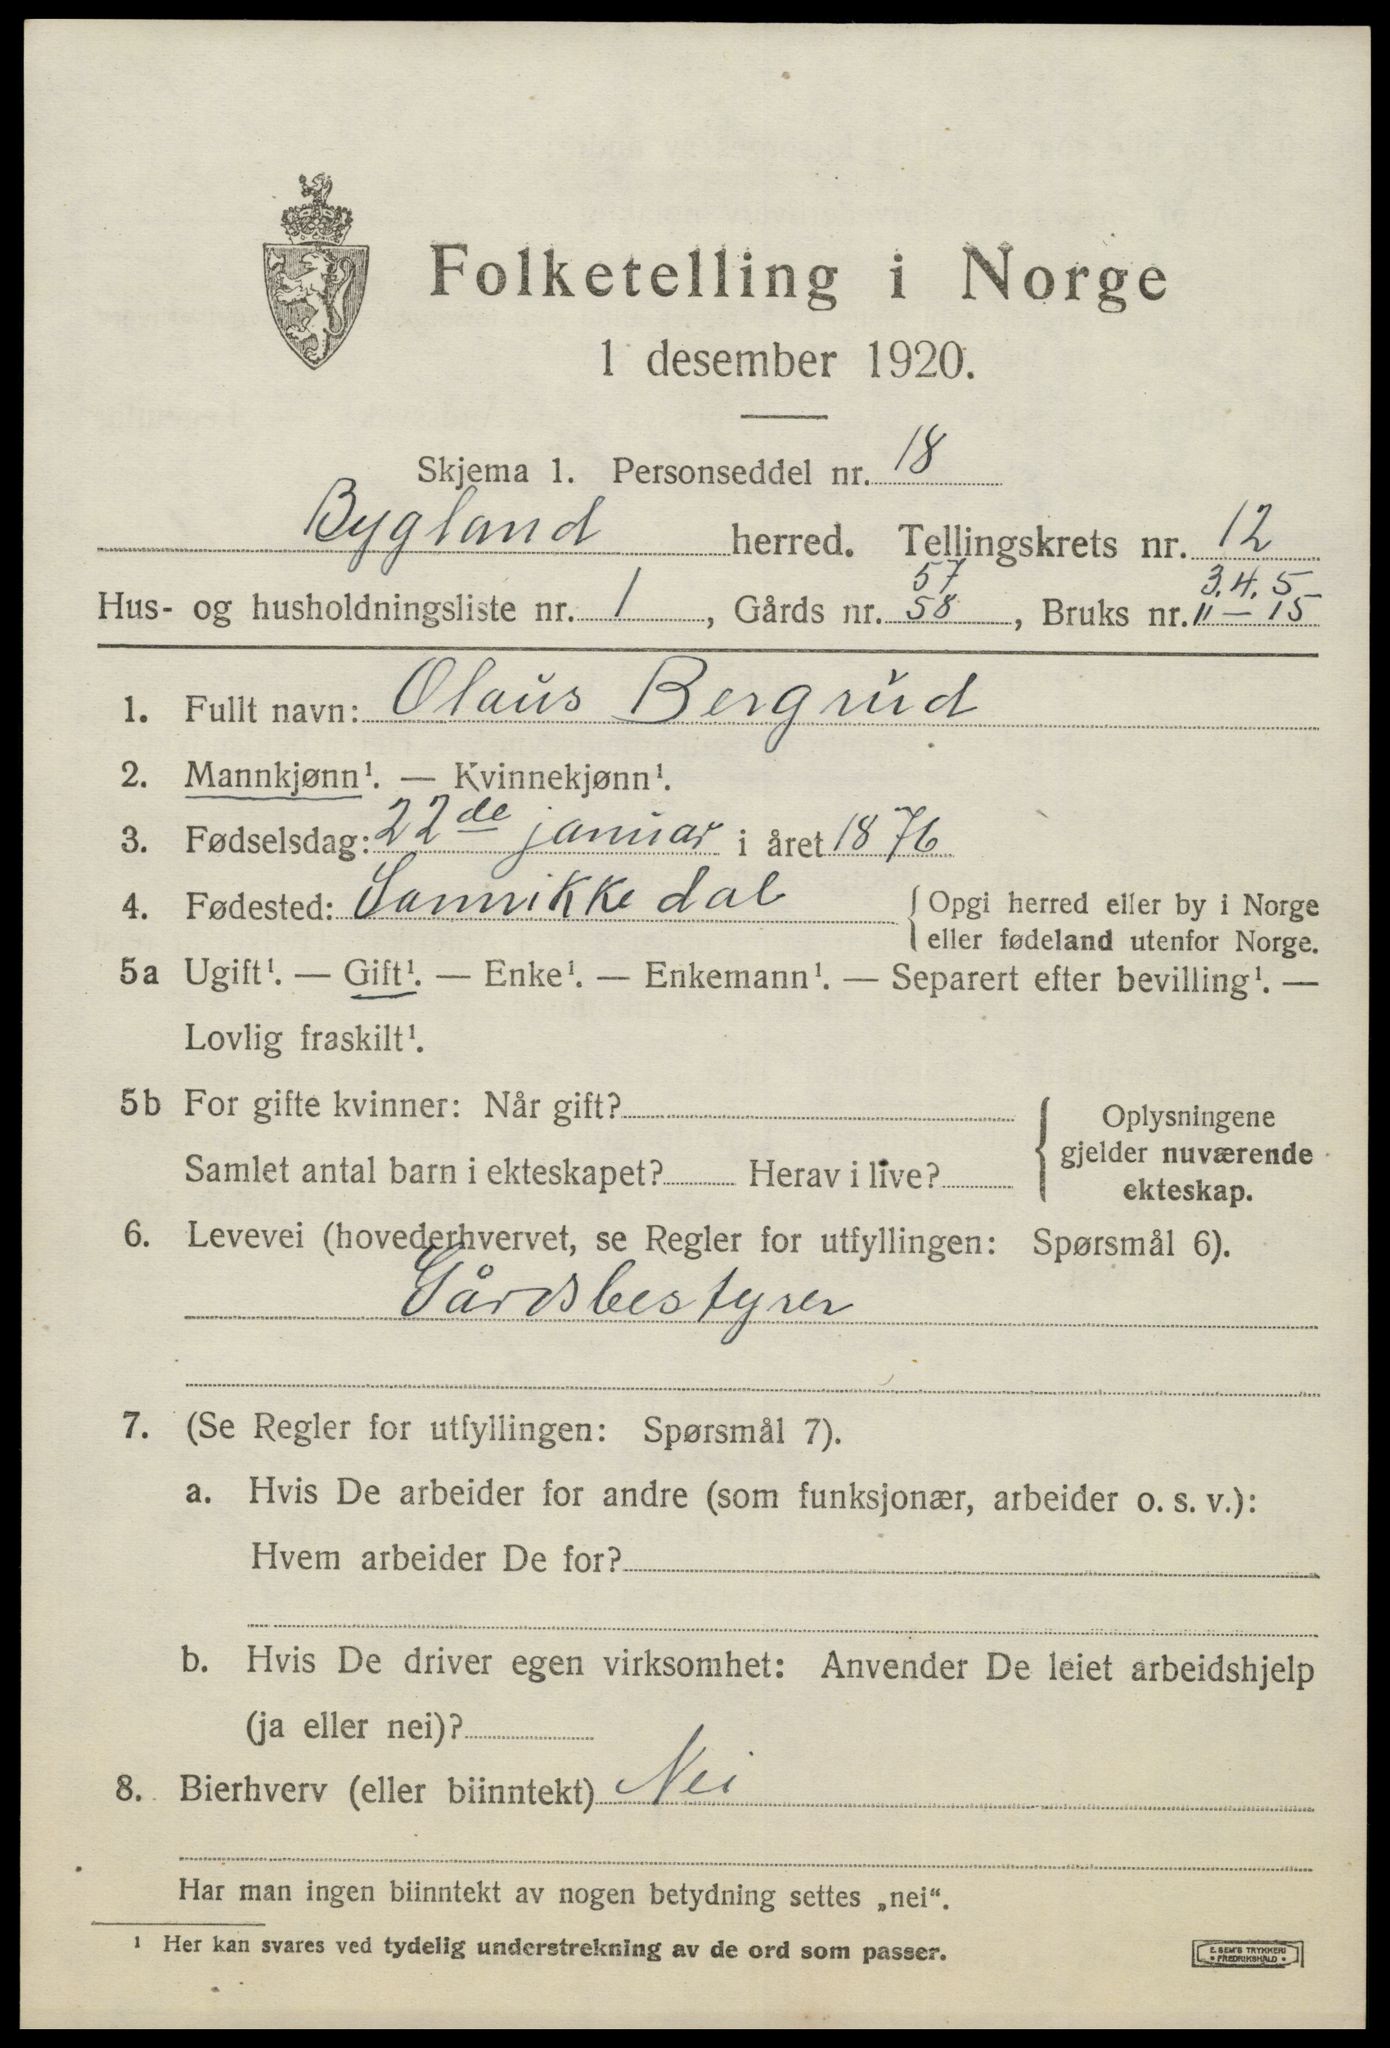 Folketelling i Norge
1 desember 1920.
Skjema 1. Personseddel nr. 18
Bygland herred. Tellingskrets nr. 12
57 3.4.5
Hus- og husholdningsliste nr. 1, Gårds nr. 58, Bruks nr. 11 – 15
1. Fullt navn: Olaus Bergrud
2. Mannkjønn¹. — Kvinnekjønn¹.
3. Fødselsdag: 22de januar i året 1876
4. Fødested: Sannikkedal { Opgi herred eller by i Norge
eller fødeland utenfor Norge.
5a Ugift¹. — Gift¹. — Enke¹. — Enkemann¹. — Separert efter bevilling¹. —
Lovlig fraskilt¹.
5b For gifte kvinner: Når gift? { Oplysningene
gjelder nuværende
Samlet antal barn i ekteskapet? Herav i live?
ekteskap.
6. Levevei (hovederhvervet, se Regler for utfyllingen: Spørsmål 6).
Gårdsbestyrer
7. (Se Regler for utfyllingen: Spørsmål 7).
a. Hvis De arbeider for andre (som funksjonær, arbeider o. s. v.):
Hvem arbeider De for?
b. Hvis De driver egen virksomhet: Anvender De leiet arbeidshjelp
(ja eller nei)?
8. Bierhverv (eller biinntekt) Nei
Har man ingen biinntekt av nogen betydning settes „nei“.
¹ Her kan svares ved tydelig understrekning av de ord som passer.
E. SEM'S TRYKKERI
• FREDRIKSHALD •